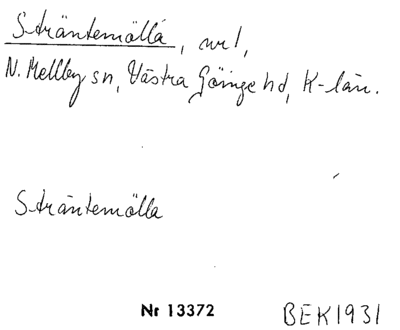 Sträntemölla, nr 1,
N. Mellby sn, Västra Göinge hd, K-län.
Sträntemölla
Nr 13372 BEK 1931